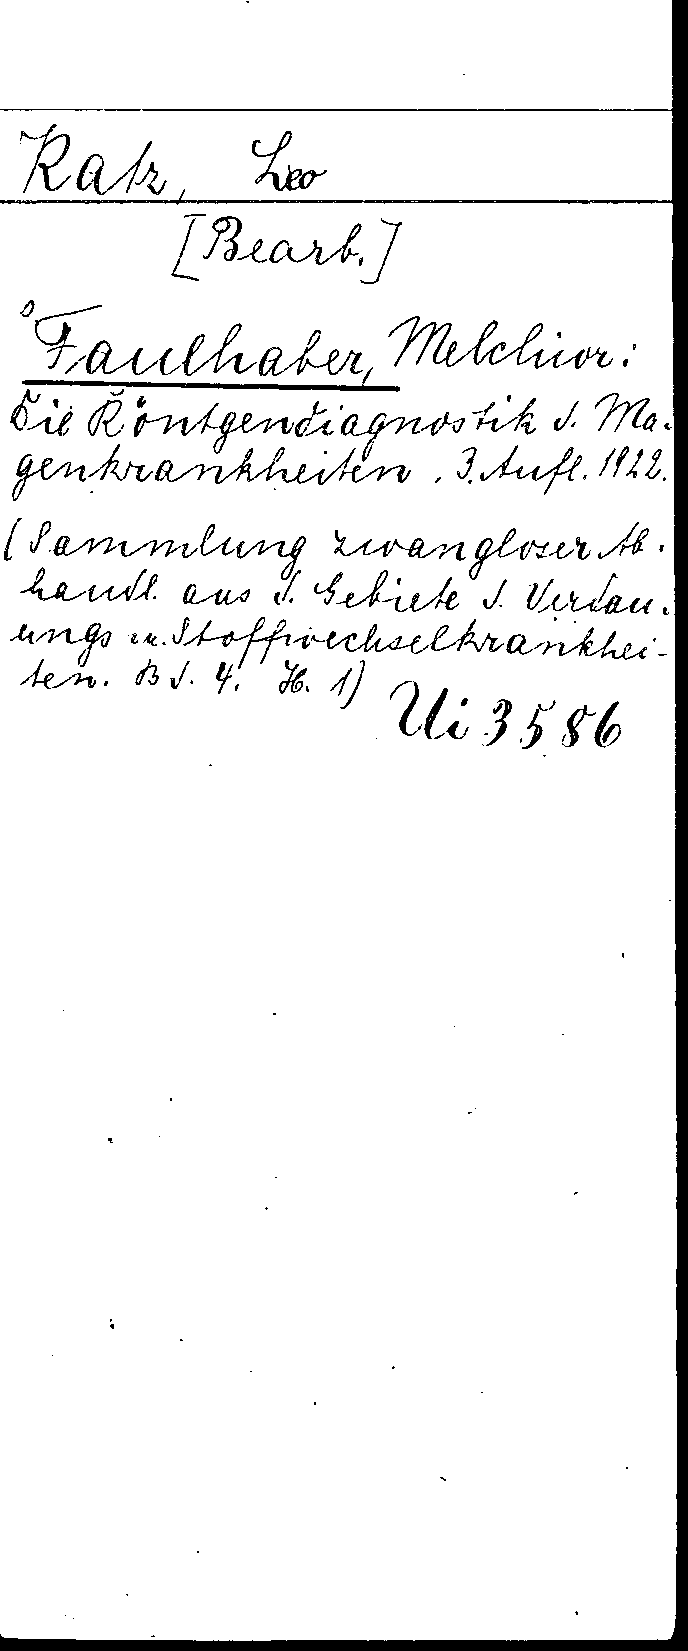 Katz, Leo
[Bearb.]
s Faulhaber, Melchior:
Die Röntgendiagnostik d. Ma-
genkrankheiten. 3. Aufl. 1922.
(Sammlung zwangloser Ab-
handl. aus d. Gebiete d. Verdau-
ungs u. Stoffwechselkrankhei-
ten. Bd. 4. H. 1)
Ui 3586